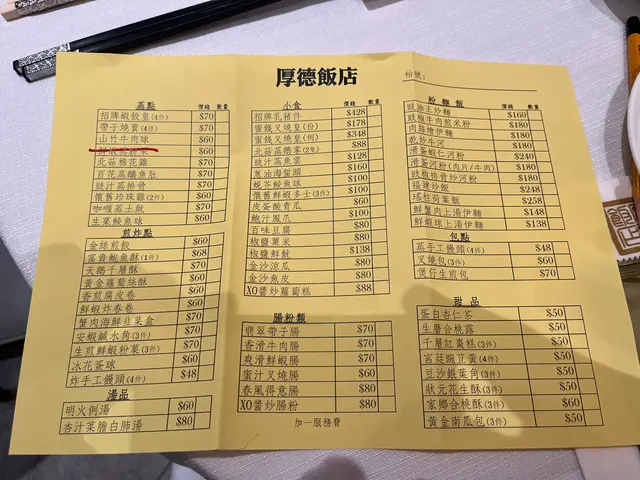 厚德飯店
枱號:
蒸點 價錢 數量
招牌蝦餃皇(4件) $70
帶子燒賣(4件) $70
山竹牛肉球 $60
$60
北菇棉花雞 $70
百花蒸釀魚肚 $70
豉汁蒸排骨 $70
懷舊珍珠雞(2件) $60
咖喱蒸土魷 $70
生菜鯪魚球 $60
煎炸點
金絲煎餃 $60
富貴鮑魚酥(1件) $68
天鵝千層酥 $70
黃金蘿蔔絲酥 $60
香煎腐皮卷 $60
鮮蝦炸春卷 $60
蟹肉海鮮韭菜盒 $70
安蝦鹹水角(3件) $70
生煎鮮蝦粉果(3件) $70
冰花蛋球 $60
炸手工饅頭(4件) $48
湯品
明火例湯 $60
杏汁菜膽白肺湯 $80
小食 價錢 數量
招牌乳豬件 $428
蜜餞叉燒皇(份) $178
蜜餞叉燒皇(例) $348
北菇蒸鵝掌(2隻) $88
豉汁蒸魚雲 $128
蔥油海蜇頭 $160
蜆芥鯪魚球 $100
懷舊鮮蝦多士(3件) $100
皮蛋酸青瓜 $60
鮑汁鳳爪 $100
百味豆腐 $80
椒鹽粟米 $80
椒鹽鮮魷 $138
金沙涼瓜 $80
金沙魚皮 $80
XO醬炒蘿蔔糕 $88
腸粉類
翡翠帶子腸 $70
香滑牛肉腸 $70
爽滑鮮蝦腸 $70
蜜汁叉燒腸 $60
春風得意腸 $80
XO醬炒腸粉 $80
加一服務費
粉麵飯 價錢 數量
豉油王炒麵 $160
豉椒牛肉煎米粉 $180
肉絲燴伊麵 $180
乾炒牛河 $180
滑蛋蝦仁河粉 $240
滑蛋河粉(肉片/牛肉) $180
豉椒排骨炒河粉 $180
福建炒飯 $248
瑤柱荷葉飯 $258
鮮蟹肉上湯伊麵 $148
鮮蝦球上湯伊麵 $148
包點
蒸手工饅頭(4件) $48
叉燒包(3件) $60
煲仔生煎包 $70
甜品
蛋白杏仁茶 $50
生磨合桃露 $50
千層紅棗糕(3件) $50
宮廷豌荳黃(4件) $50
豆沙銀葉角(3件) $50
狀元花生酥(3件) $50
家鄉合桃酥(3件) $60
黃金南瓜包(3件) $50